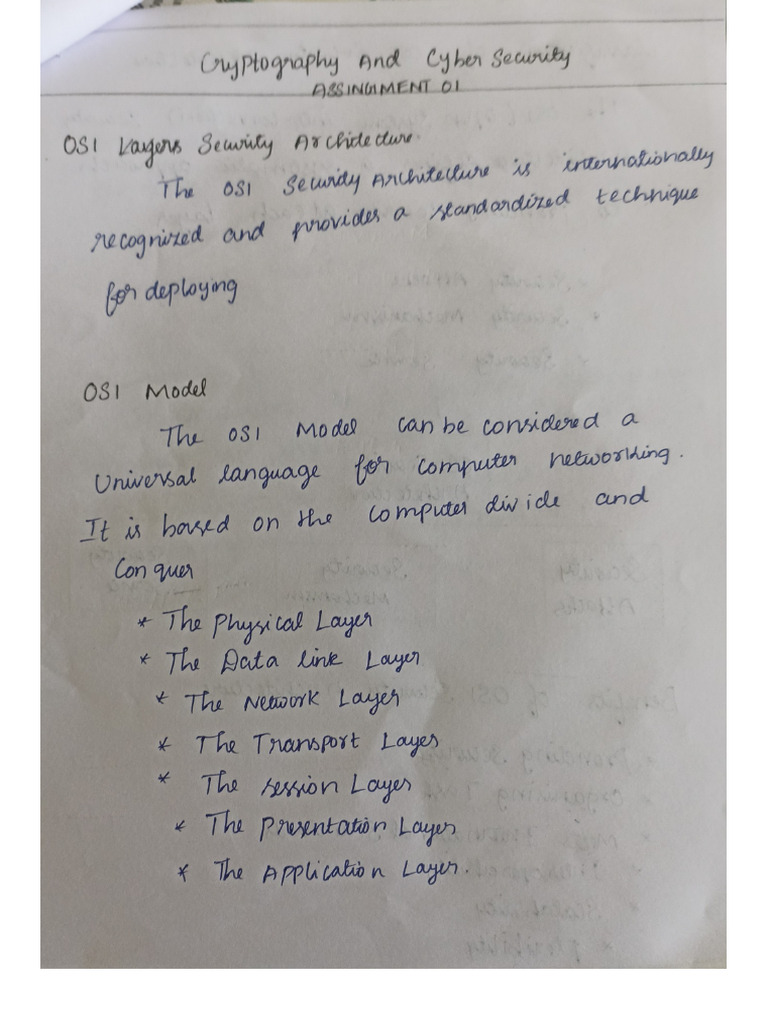 Cryptography And Cyber Security
ASSINGMENT 01
OSI Layers Security Architecture
The OSI Security Architecture is internationally
recognized and provides a standardized technique
for deploying
OSI Model
The OSI Model can be considered a
Universal language for computer networking.
It is based on the computer divide and
Conquer
* The Physical Layer
* The Data link Layer
* The Network Layer
* The Transport Layer
* The session Layer
* The Presentation Layer
* The Application Layer.